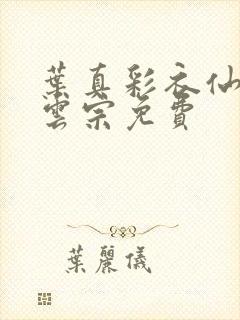 葉真彩衣仙
雲宗免費
葉麗儀